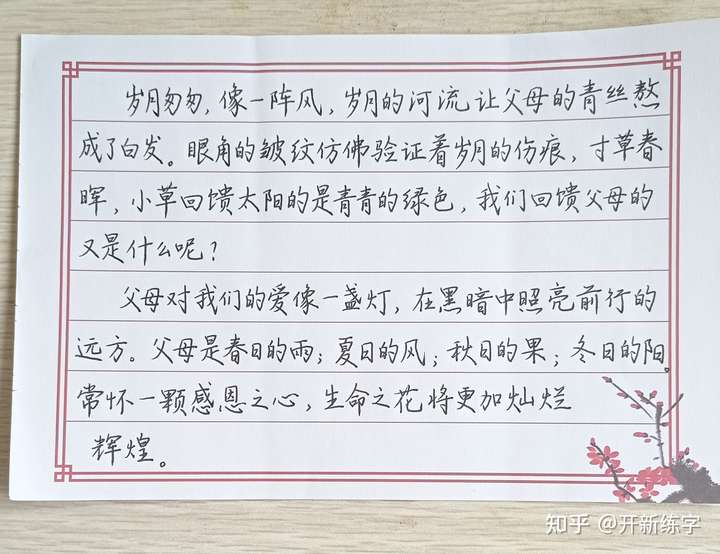 岁月匆匆，像一阵风，岁月的河流让父母的青丝熬
成了白发。眼角的皱纹仿佛验证着岁月的伤痕，寸草春
晖，小草回馈太阳的是青青的绿色，我们回馈父母的
又是什么呢？
父母对我们的爱像一盏灯，在黑暗中照亮前行的
远方。父母是春日的雨；夏日的风；秋日的果；冬日的阳。
常怀一颗感恩之心，生命之花将更加灿烂
辉煌。
知乎 @开新练字